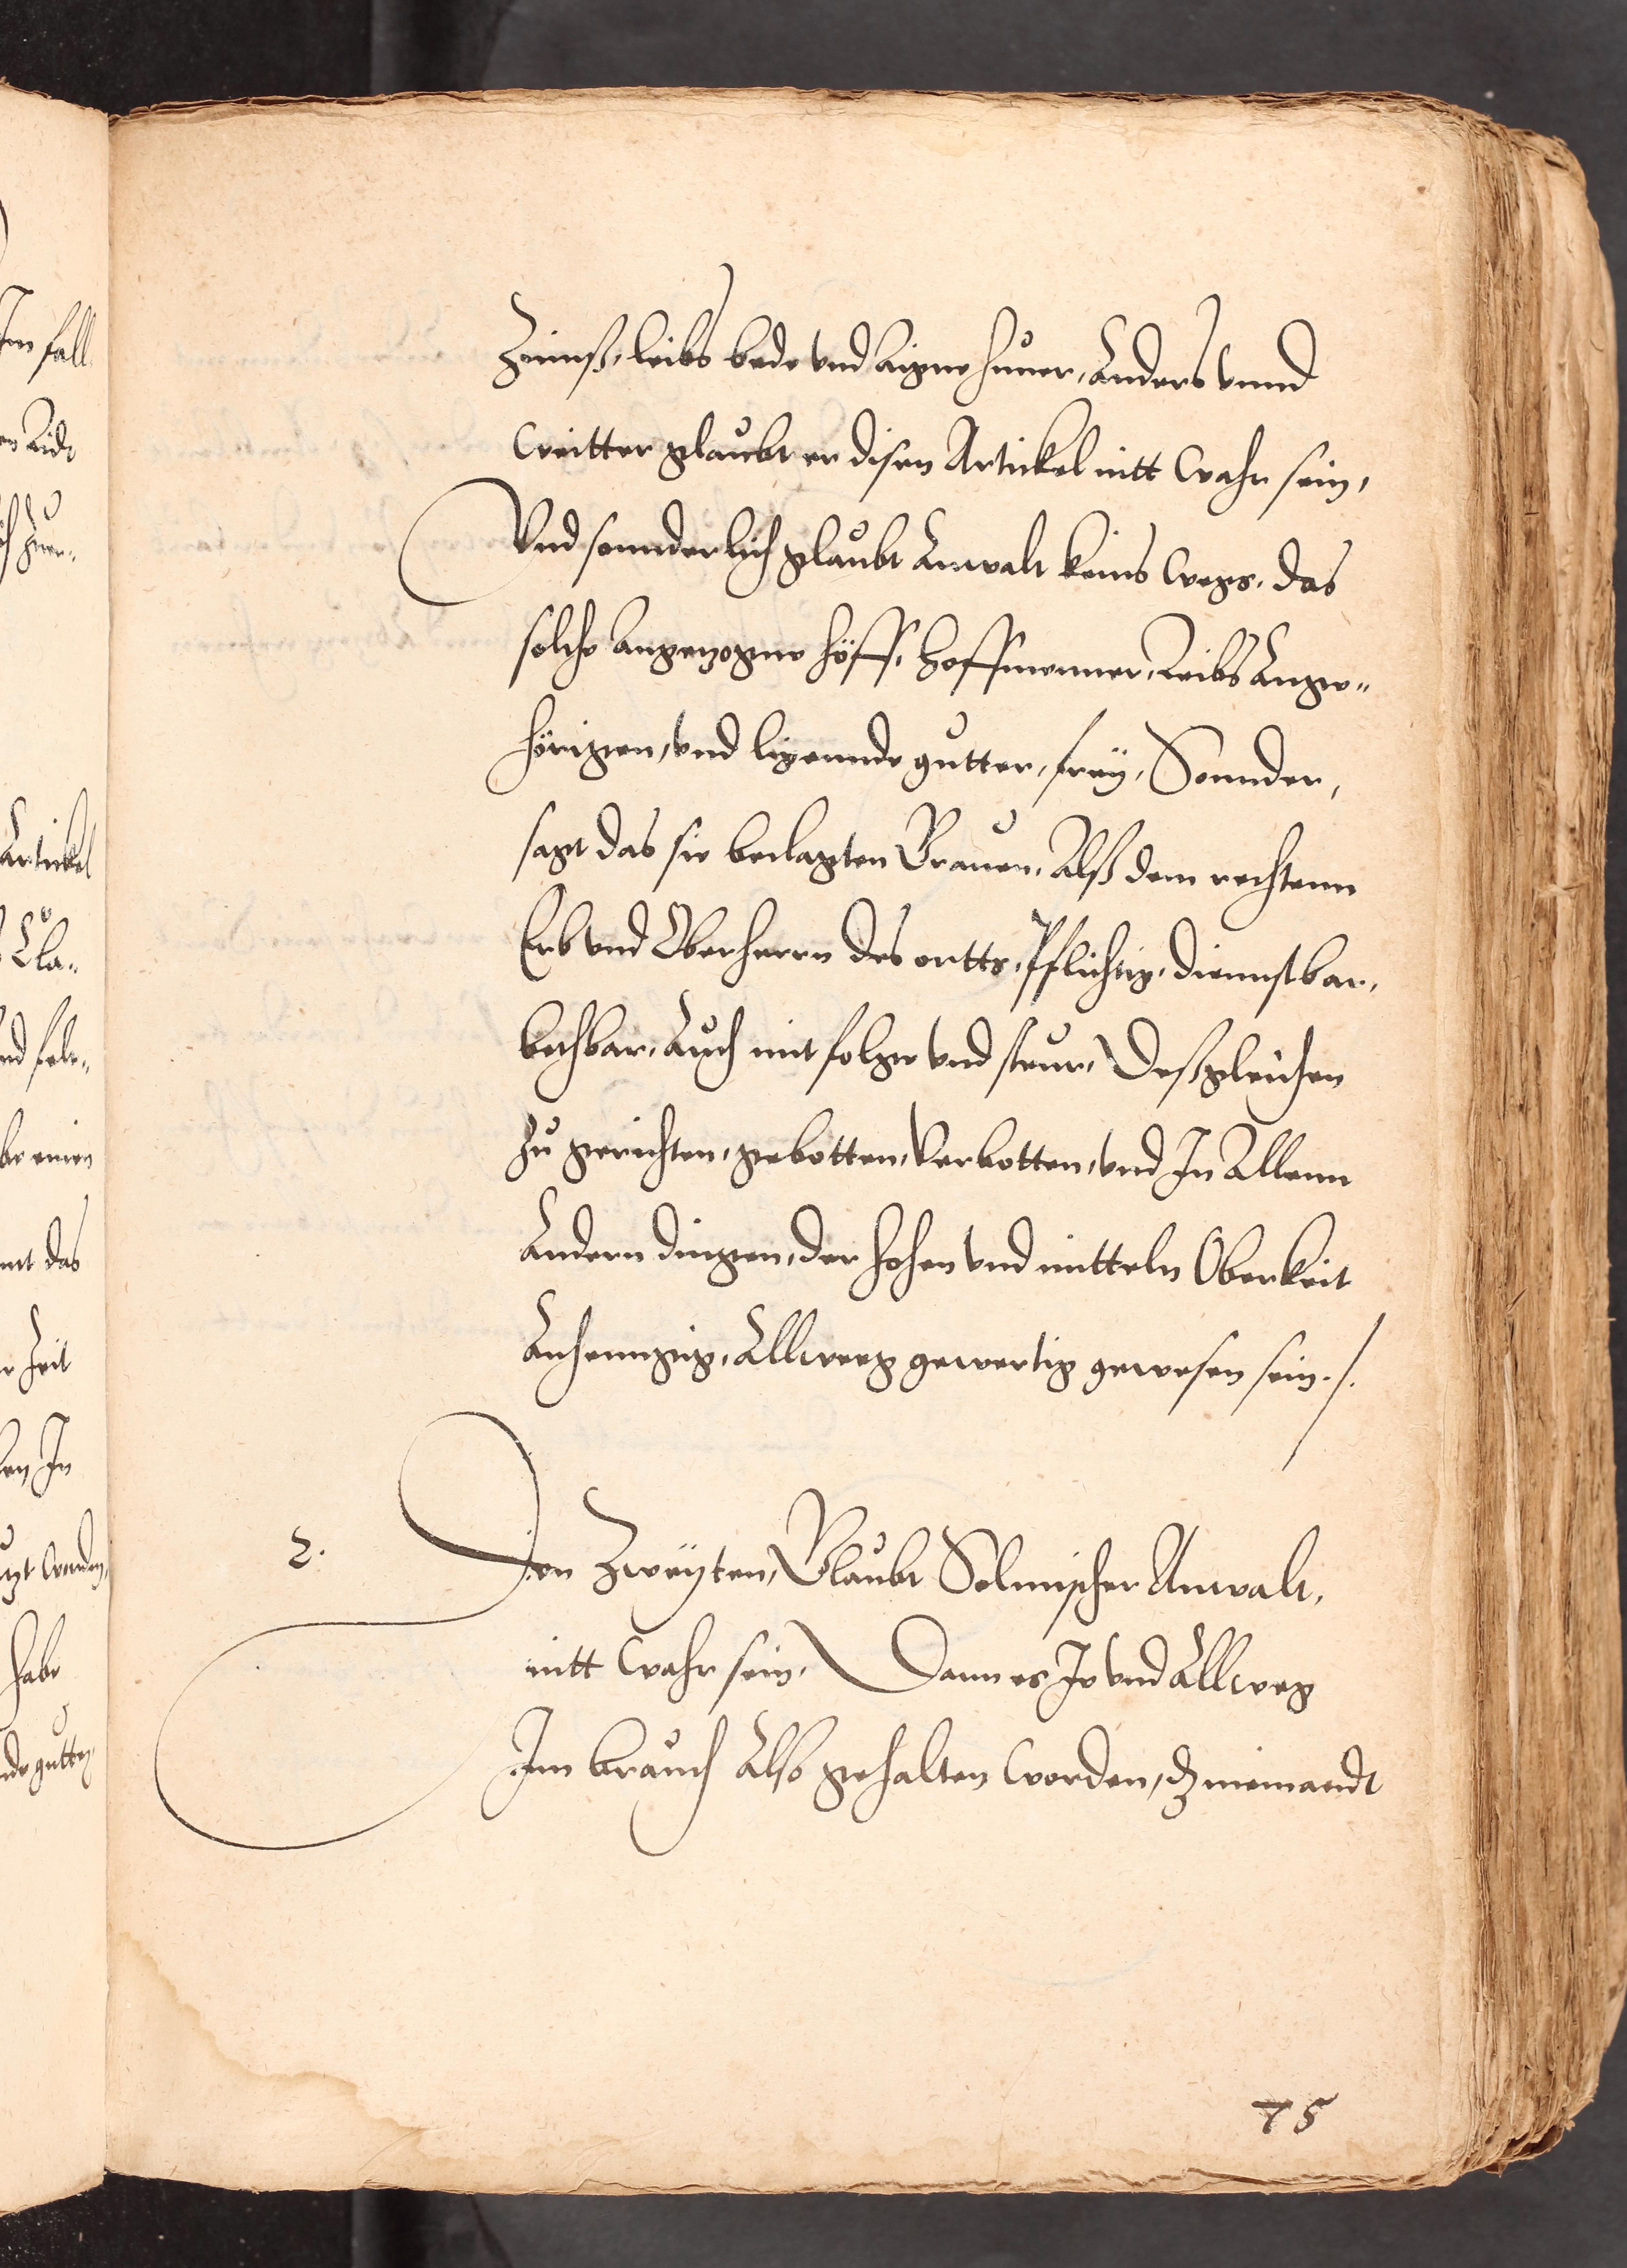 Zinnß, leibs bede vnd aigne huner, Anders vnnd
weitter glaubt er disen Artickel nitt wahr sein,
Vnd sonnderlich glaubt Anwalt keins wegs, das
solche angezogne höff, hoffmenner, Leibs Ange„
hörigen, vnd ligennde gutter, frey, Sonnder,
sagt das sie beclagten Grauen, Alß dem rechtenn
Erb vnd Oberherrn des ortts, Pflichtig, diennstbar,
bethbar, Auch mit folge vnd steur, Deßgleichen
zu gerichten, gebotten, verbotten, vnd In Allenn
Andern dingen, der hohen vnd mitteln Oberkeit
Anhenngig, Allweg gewertig gewesen sein ./.
2. Den Zweyten, Glaubt Solmischer Anwalt,
nitt wahr sein, Dann es Je vnd Allweg
Im brauch Also gehalten worden, dz niemandt
75
Im fall
Artickel
einen
das
Zeit
In
habe
gutter